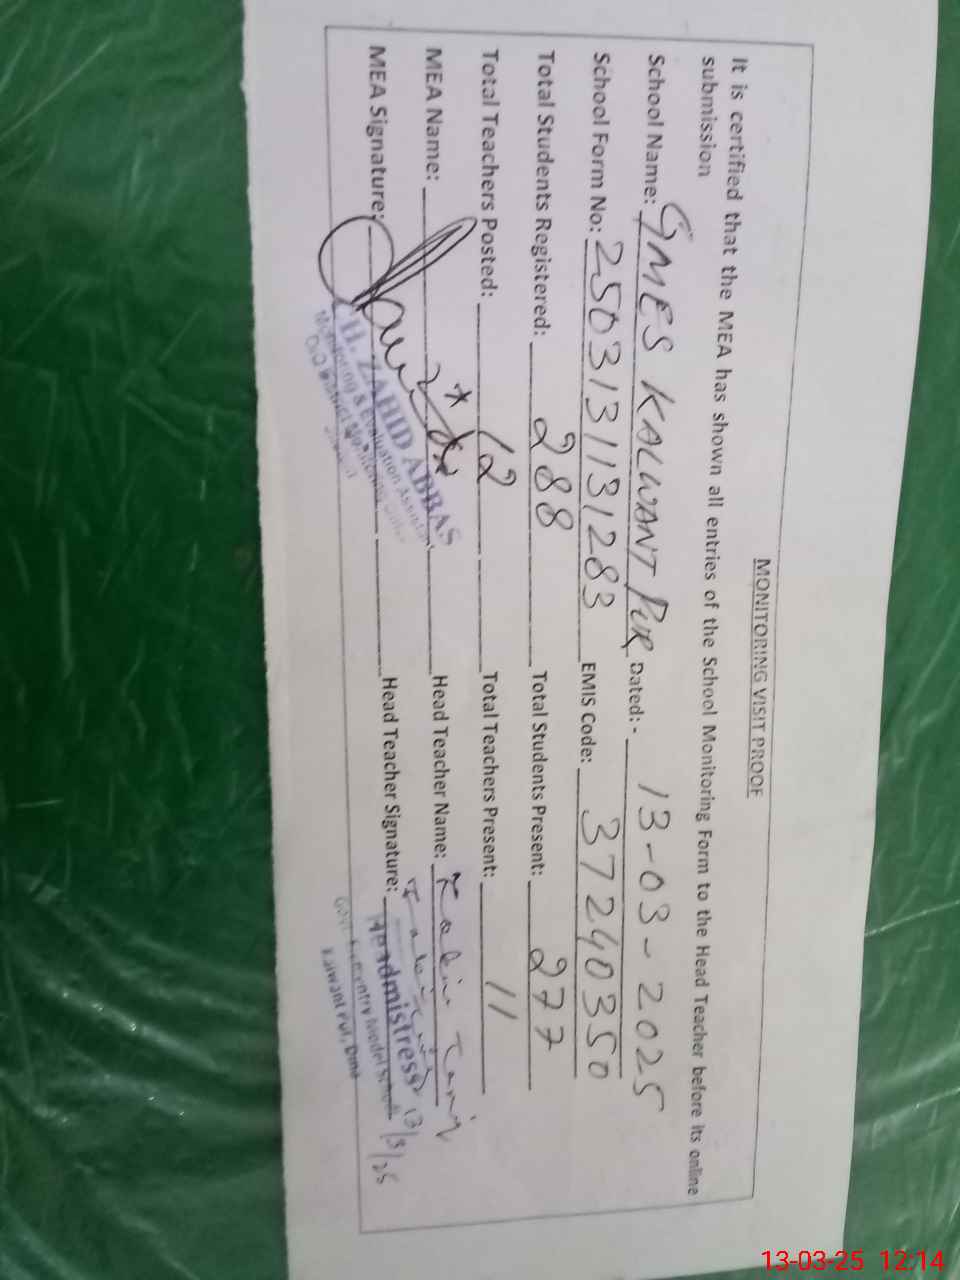 MONITORING VISIT PROOF
It is certified that the MEA has shown all entries of the School Monitoring Form to the Head Teacher before its online
submission
School Name: GMES KALWANT PUR Dated:- 13-03-2025
School Form No: 2503131131283 EMIS Code: 37240350
Total Students Registered: 288 Total Students Present: 277
Total Teachers Posted: 12 Total Teachers Present: 11
MEA Name: Head Teacher Name:
MEA Signature: Head Teacher Signature:
CH. ZAHID ABBAS
Monitoring & Evaluation
Headmistress 13/3/25
Model School
Kalwant Pur, Dina
13-03-25 12:14